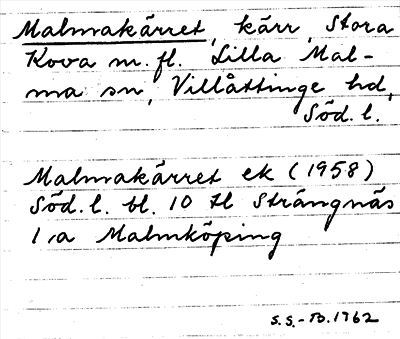 Malmakärret, kärr, Stora
Kova m. fl. Lilla Mal-
ma sn, Villåttinge hd,
Söd. l.
Malmakärret ek (1958)
Söd. l. bl. 10 tl Strängnäs
1:a Malmköping
S.S.-B. 1762